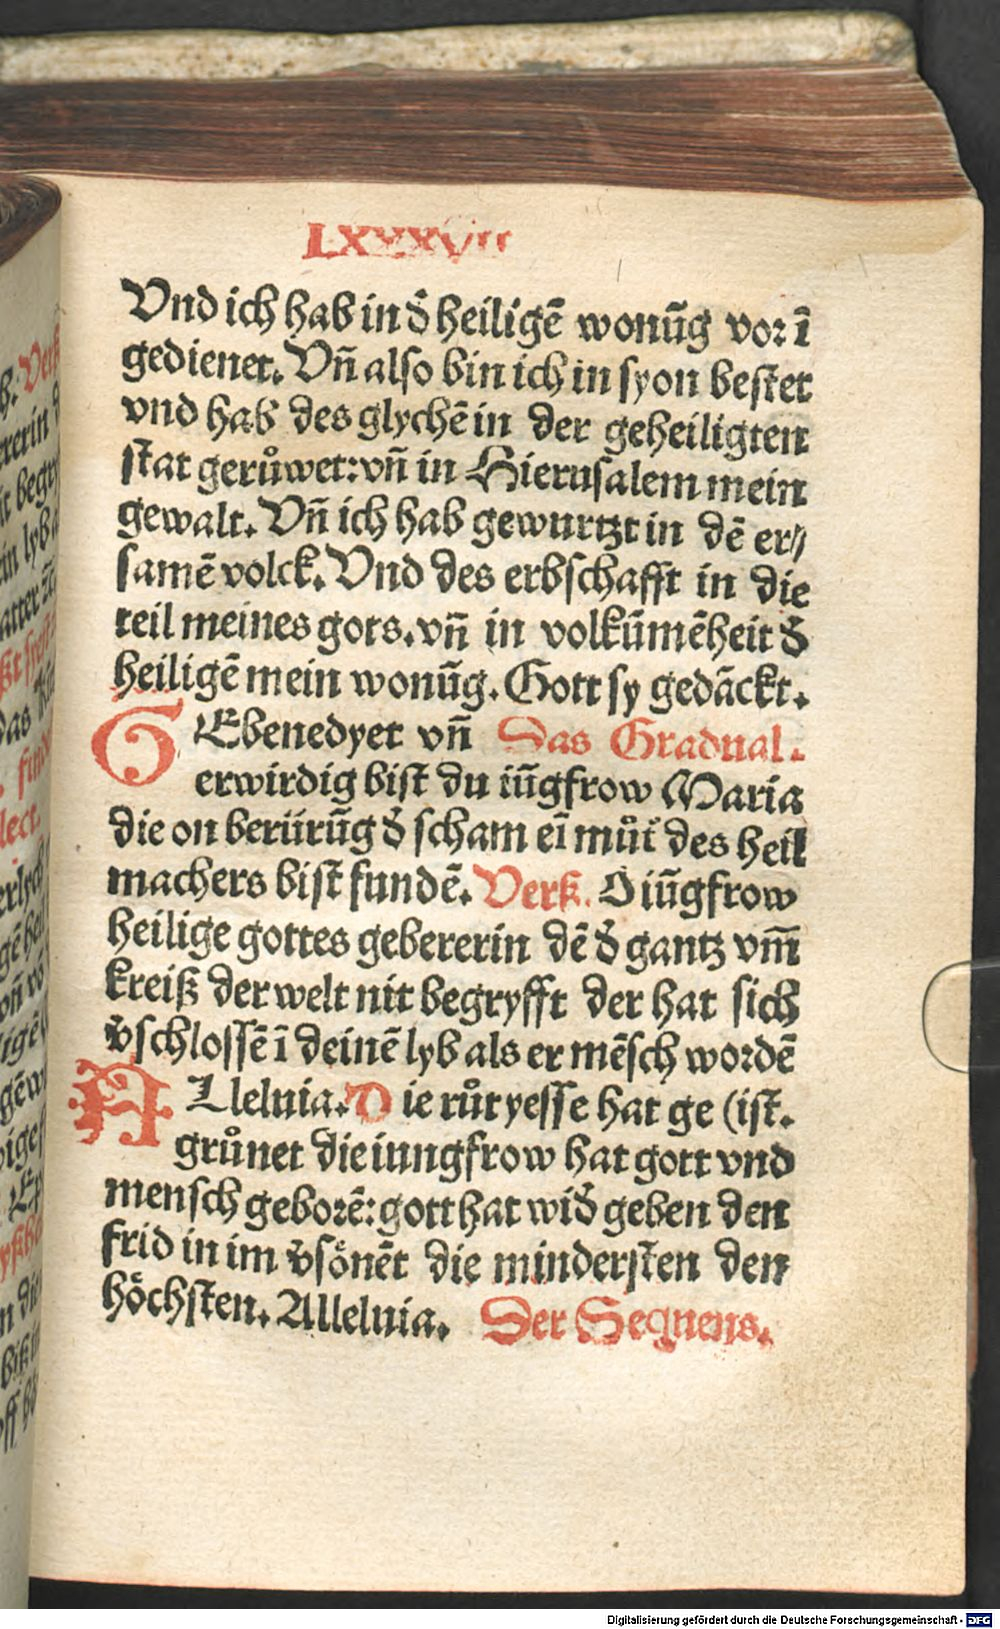 LXXXVII
Vnd ich hab in d̄ heiligē wonūg vor ī
gedienet. Vñ also bin ich in syon bestet
vnd hab des glychē in der geheiligten
stat gerůwet: vñ in Hierusalem mein
gewalt. Vñ ich hab gewurtzt in dē er//
samē volck. Vnd des erbschafft in die
teil meines gots. vñ in volkūmēheit d̄
heiligē mein wonūg. Gott sy gedāckt.
GEbenedyet vñ Das Gradual.
erwirdig bist du iūgfrow Maria
die on berürūg d̄ scham eī můt̄ des heil
machers bist fundē. Verß. O iūgfrow
heilige gottes gebererin dē d̄ gantz vm̄
kreiß der welt nit begryfft der hat sich
v̄schlossē ī deinē lyb als er mēsch wordē
ALleluia. Die růt yesse hat ge (ist.
grůnet die iungfrow hat gott vnd
mensch geborē: gott hat wid̄ geben den
frid in im v̄sönēt die mindersten den
höchsten. Alleluia. Der Sequens.
Digitalisierung gefördert durch die Deutsche Forschungsgemeinschaft - DFG